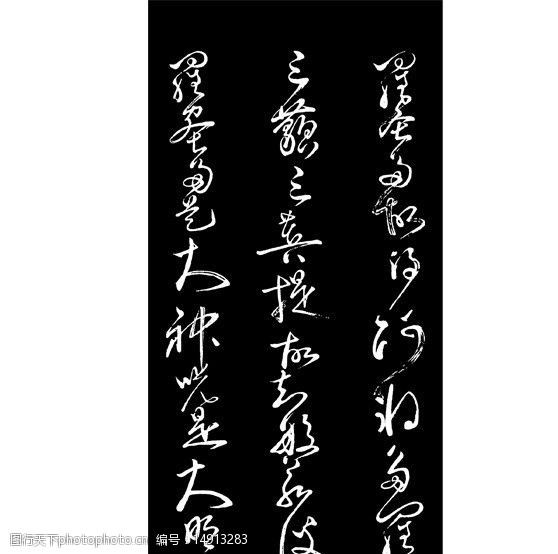 羅蜜多故得阿耨多羅
三藐三菩提故知般若波
羅蜜多是大神咒是大明
图行天下 photophoto.cn 编号：14913283